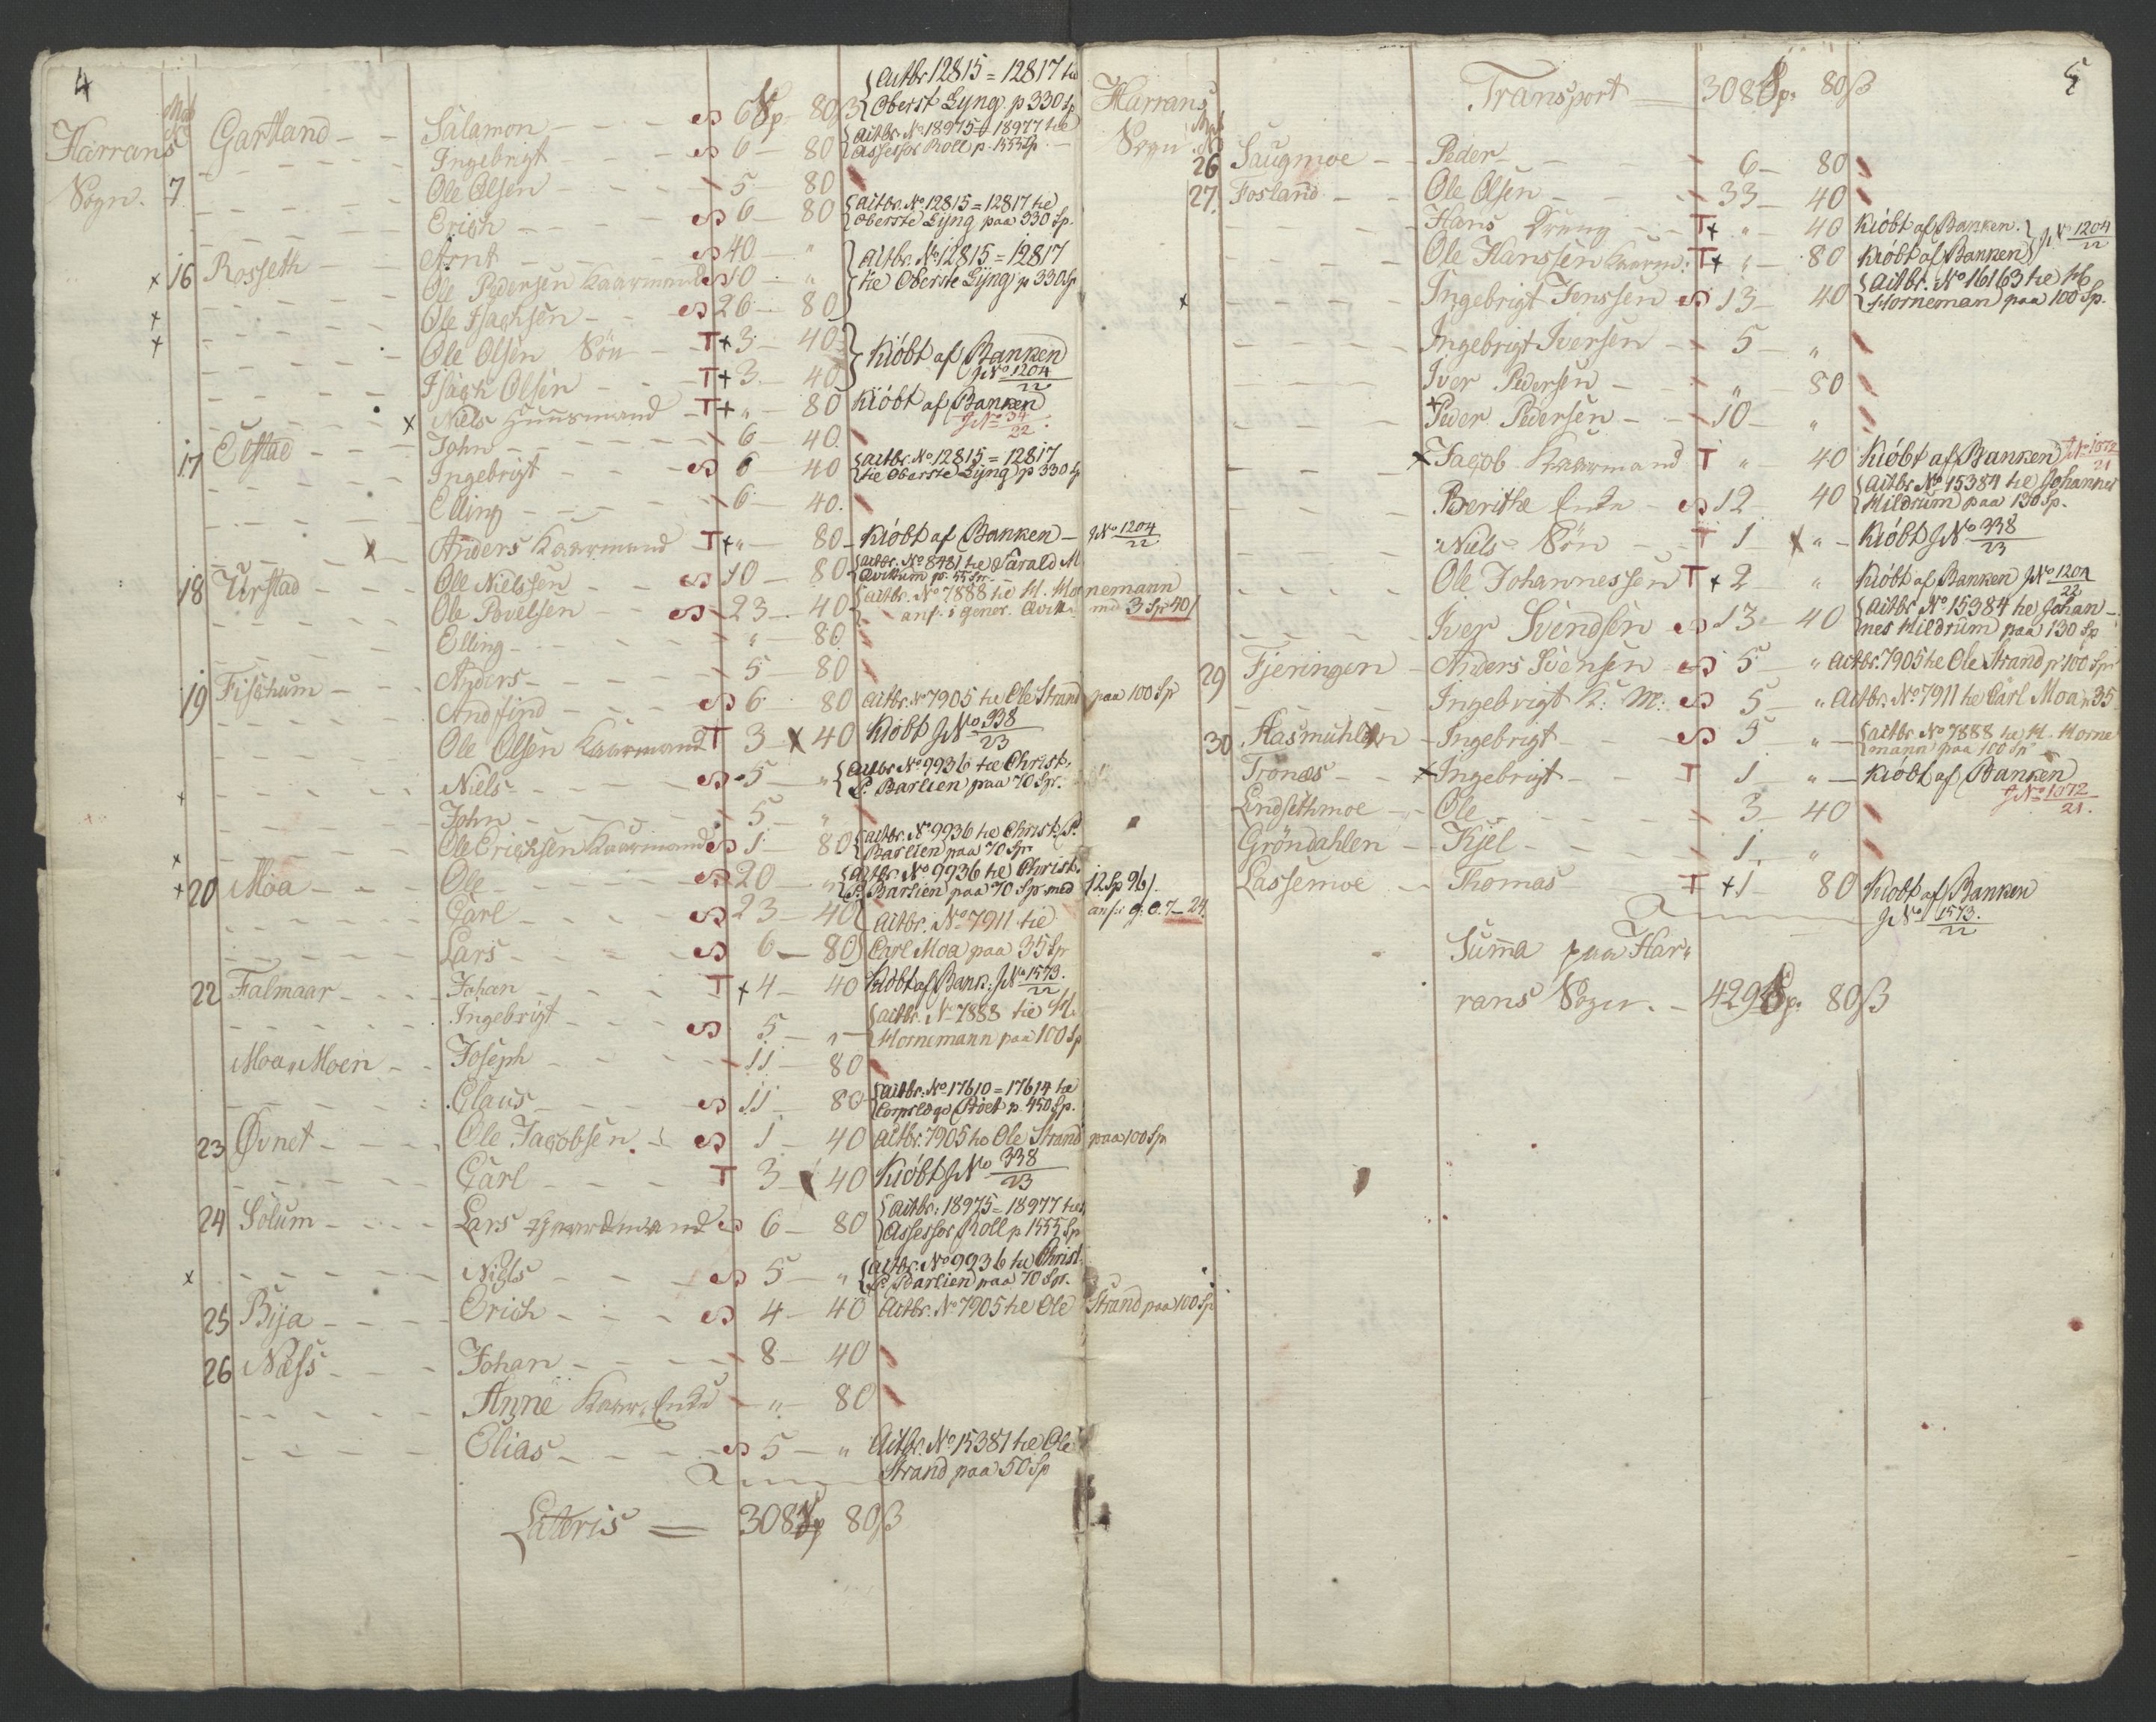 4
Mat
No
Harrans
Sogn. 7. Gartland Salamon S 6 Sp 80 ß {Actbr 12815 = 12817 til Oberst Lyng p 330 Sp
Ingebrigt S 6 — 80 {Actbr. No 18975 = 18977 til Assessor Roll p. 1555 Sp.
Ole Olsen 5 — 80
Erich S 6 80 {Actbr. No 12815 = 12817 til Oberste Lyng paa 330 Sp.
16 Rosseth Arnt S 40 — " } Actbr. No 12815 = 12817
x Ole Pedersen Kaarmand S 10 " til Oberste Lyng p 330 Sp
x Ole Isachsen S 26 — 80
x Ole Olsen Sön T + 3 — 40 } Kióbt af Banken
Isach Olsen T + 3 — 40 J No 1204/22
x Niels Huusmand T + " — 80 Kióbt af Banken J No 34/22
17 Elstad John 6 — 40.
Ingebrigt S 6 — 40 {Actbr. No 12815 = 12817 til Oberste Lyng p 330 Sp
Elling 6 — 40.
x Anders Kaarmand T + " — 80 Kióbt af Banken — J No 1204/22
18 Urstad Ole Nielssen S 10 — 80 {Actbr. No 8481 til Harald M Qvikum p. 55 Sp.
Ole Povelsen S 23 — 40 {Actbr. No 7888 til H. Hornemann anf. i gener. Qvitt. med 3 Sp 40 ß
Elling " — 80
19 Fischum Anders 5 — 80
Andfind S 6 80 Actbr. No 7905 til Ole Strand paa 100 Sp
Ole Olsen Kaarmand T 3 x 40 Kióbt J No 338/23
Niels S 5 — " {Actbr No 9936 til Christ. P. Barlien paa 70 Sp.
x John 5 — "
Ole Erichsen Kaarmand S 1 — 80 {Actbr. No 9936 til Christ. P. Barlien paa 70 Sp.
x
x 20 Moa Ole S 20 — " {Actbr No 9936 til Christ. P. Barlien paa 70 Sp. med 12 Sp 96 ß.
Carl S 23 — 40 } Actbr. No 7911 til anf. i g. Q. 7 — 24.
Lars S 6 — 80 } Carl Moa paa 35 Sp
22 Falmaar Johan T + 4 — 40 Kióbt af Bank. J No 1573/22
Ingebrigt S 5 — " {Actbr. No 7888 til H. Hornemann paa 100 Sp
Moa, Moen Joseph 11 — 80
Claus S 11 80 {Actbr. No 17610 = 17614 til Corpslæge Stoet p. 450 Sp.
23 Øvnet Ole Jacobsen. S 1 — 40 Actbr. 7905 til Ole Strand paa 100 Sp
Carl T 3 40 Kióbt J No 338/23
24 Solum Lars Gaardmand S 6 — 80 {Actbr. 18975 = 18977 til Assessor Roll p 1555 Sp
x Niels S 5 — " {Actbr. No 9936 til Christ. P. Barlien paa 70 Sp.
25 Bÿa Erich S 4 — 40 Actbr. No 7905 til Ole Strand paa 100 Sp
26 Næss Johan 8 — 40
Anne Kaar, Enke " — 80
Elias S 5 — " Actbr. No 15381 til Ole Strand paa 50 Sp
Lateris = 308 Sp 80 ß
5
Harrans
Sogn Mat No
Transport 308 Sp. 80 ß
26 Saugmoe Peder 6 — 80
27. Fosland Ole Olsen 33 — 40
Hans T + " — 40 Kióbt af Banken. } J No 1204/22
Ole Hanssen Kaarm: T + " — 80 Kióbt af Banken
x Ingebrigt Jenssen S 13 — 40 {Actbr. No 16163 til H. Horneman paa 100 Sp.
Ingebrigt Iversen 5 — "
Iver Pedersen " — 80
x Peder Pedersen 10 — "
x Jacob Kaarmand T " 40 Kióbt af Banken J No 1072/21
Berithe Enke S 12 40 {Actbr No 15384 til Johannes Mildrum paa 130 Sp.
Niels Sön T 1 x " — Kióbt J No 338/23
Ole Johannessen T + 2 — " Kióbt af Banken J No 1204/22
Iver Svendsen S 13 — 40 {Actbr No 15384 til Johannes Mildrum paa 130 Sp
29 Fjeringen Anders Svensen S 5 — " Actbr. 7905 til Ole Strand p. 100 Sp
Ingebrigt K: M: S 5 — " Actbr. No 7911 til Carl Moa p 35
30 Aasmuhlen Ingebrigt S 5 " — {Actbr No 7888 til H. Hornemann paa 100 Sp
Tronæs x Ingebrigt T 1 " — Kióbt af Banken J No 1072/21.
Lindsethmoe Ole 3 — 40
Gröndahlen Kjel 1 "
Lassemoe Thomas T + 1 — 80 Kióbt af Banken J No 1573/22
Summa paa Har-
rans Sogn. — 429 Sp. 80 ß